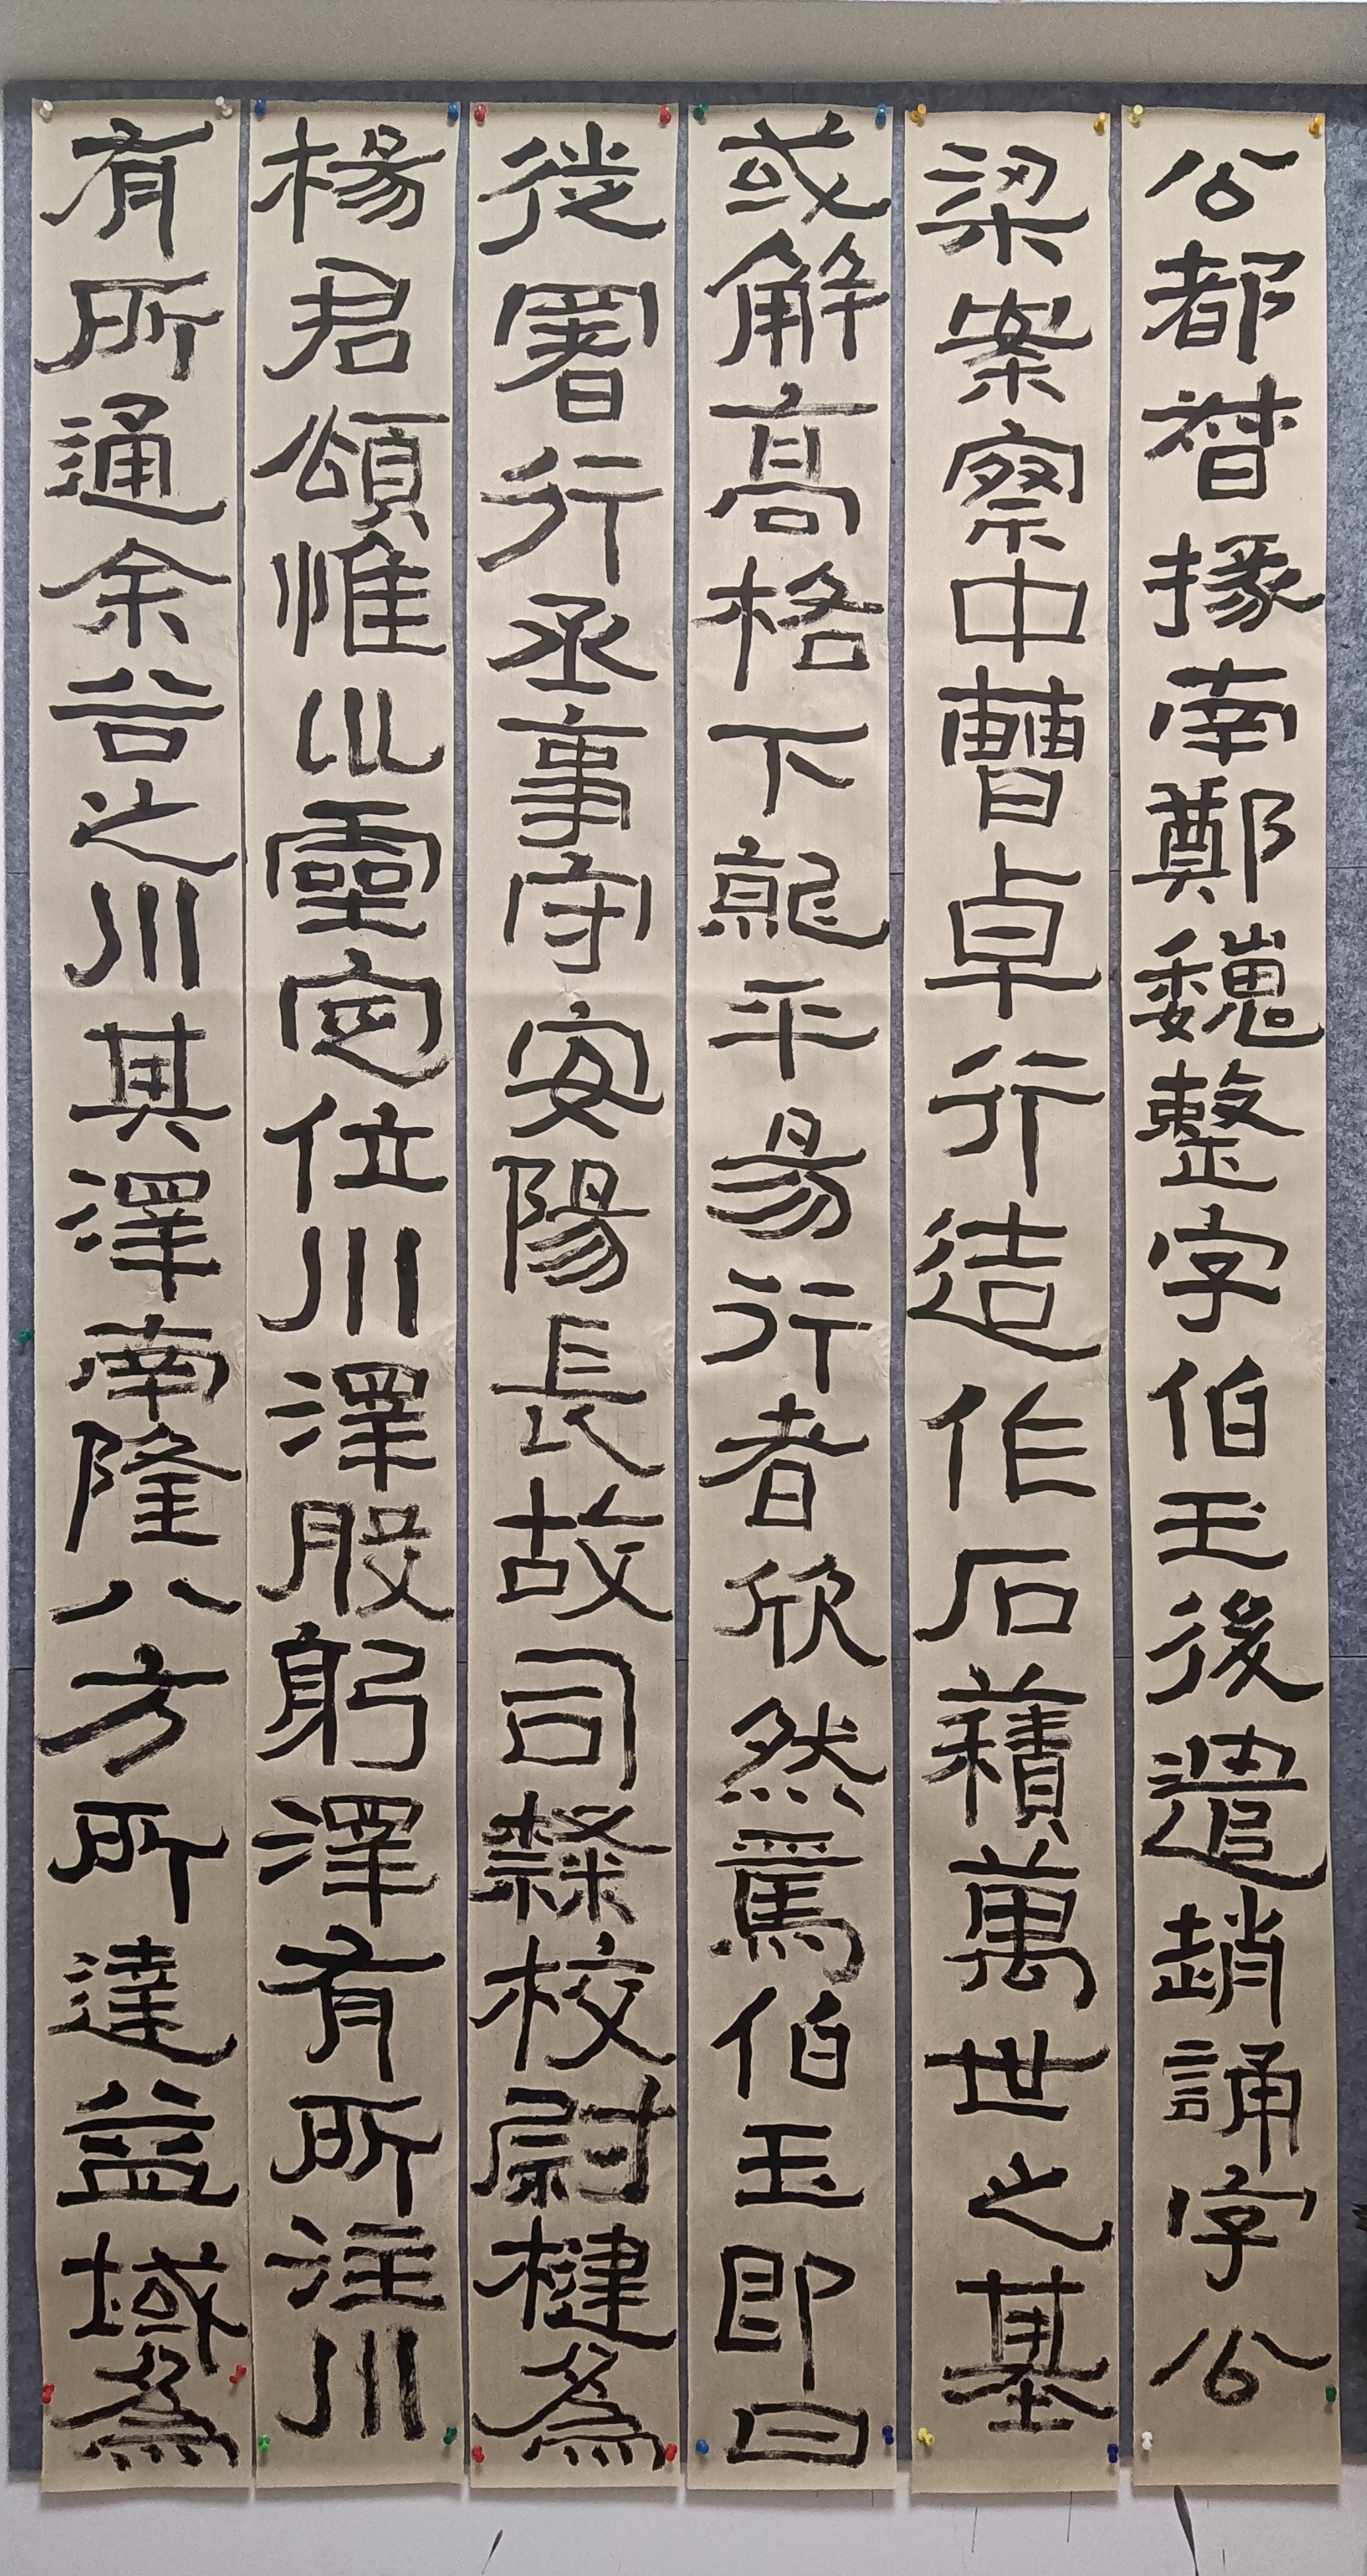 公都督掾南鄭魏整字伯玉後遣趙誦字公
梁案察中曹卓行造作石積萬世之基
或解高格下就平昜行者欣然焉伯玉即日
徙署行丞事守安陽長故司隸校尉楗為
楊君頌惟巛靈定位川澤股躬澤有所注川
有所通余谷之川其澤南隆八方所達益域為